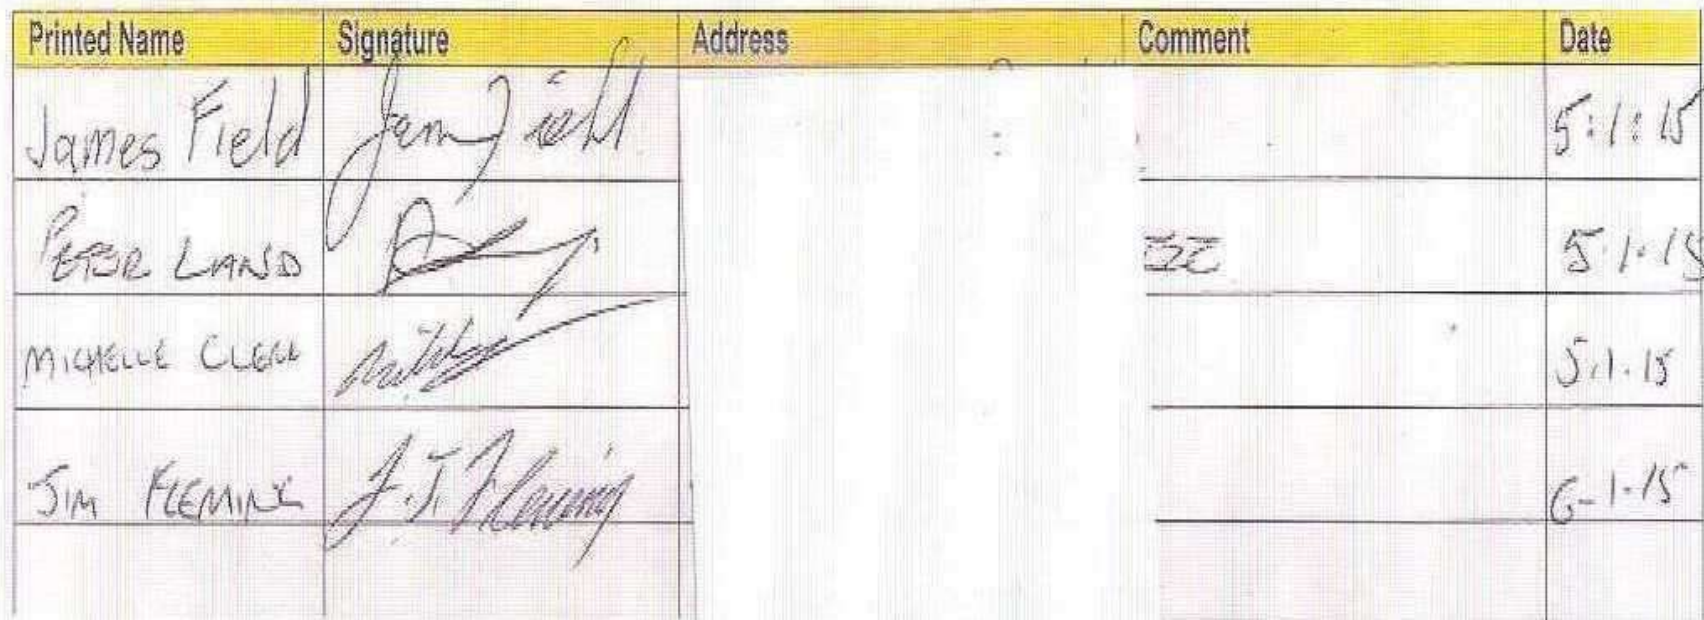 Printed Name Signature Address Comment Date
James Field 5:1:15
PETER LAND 5.1.15
MICHELLE 5.1.15
JIM FLEMING J.J. Fleming 6-1-15